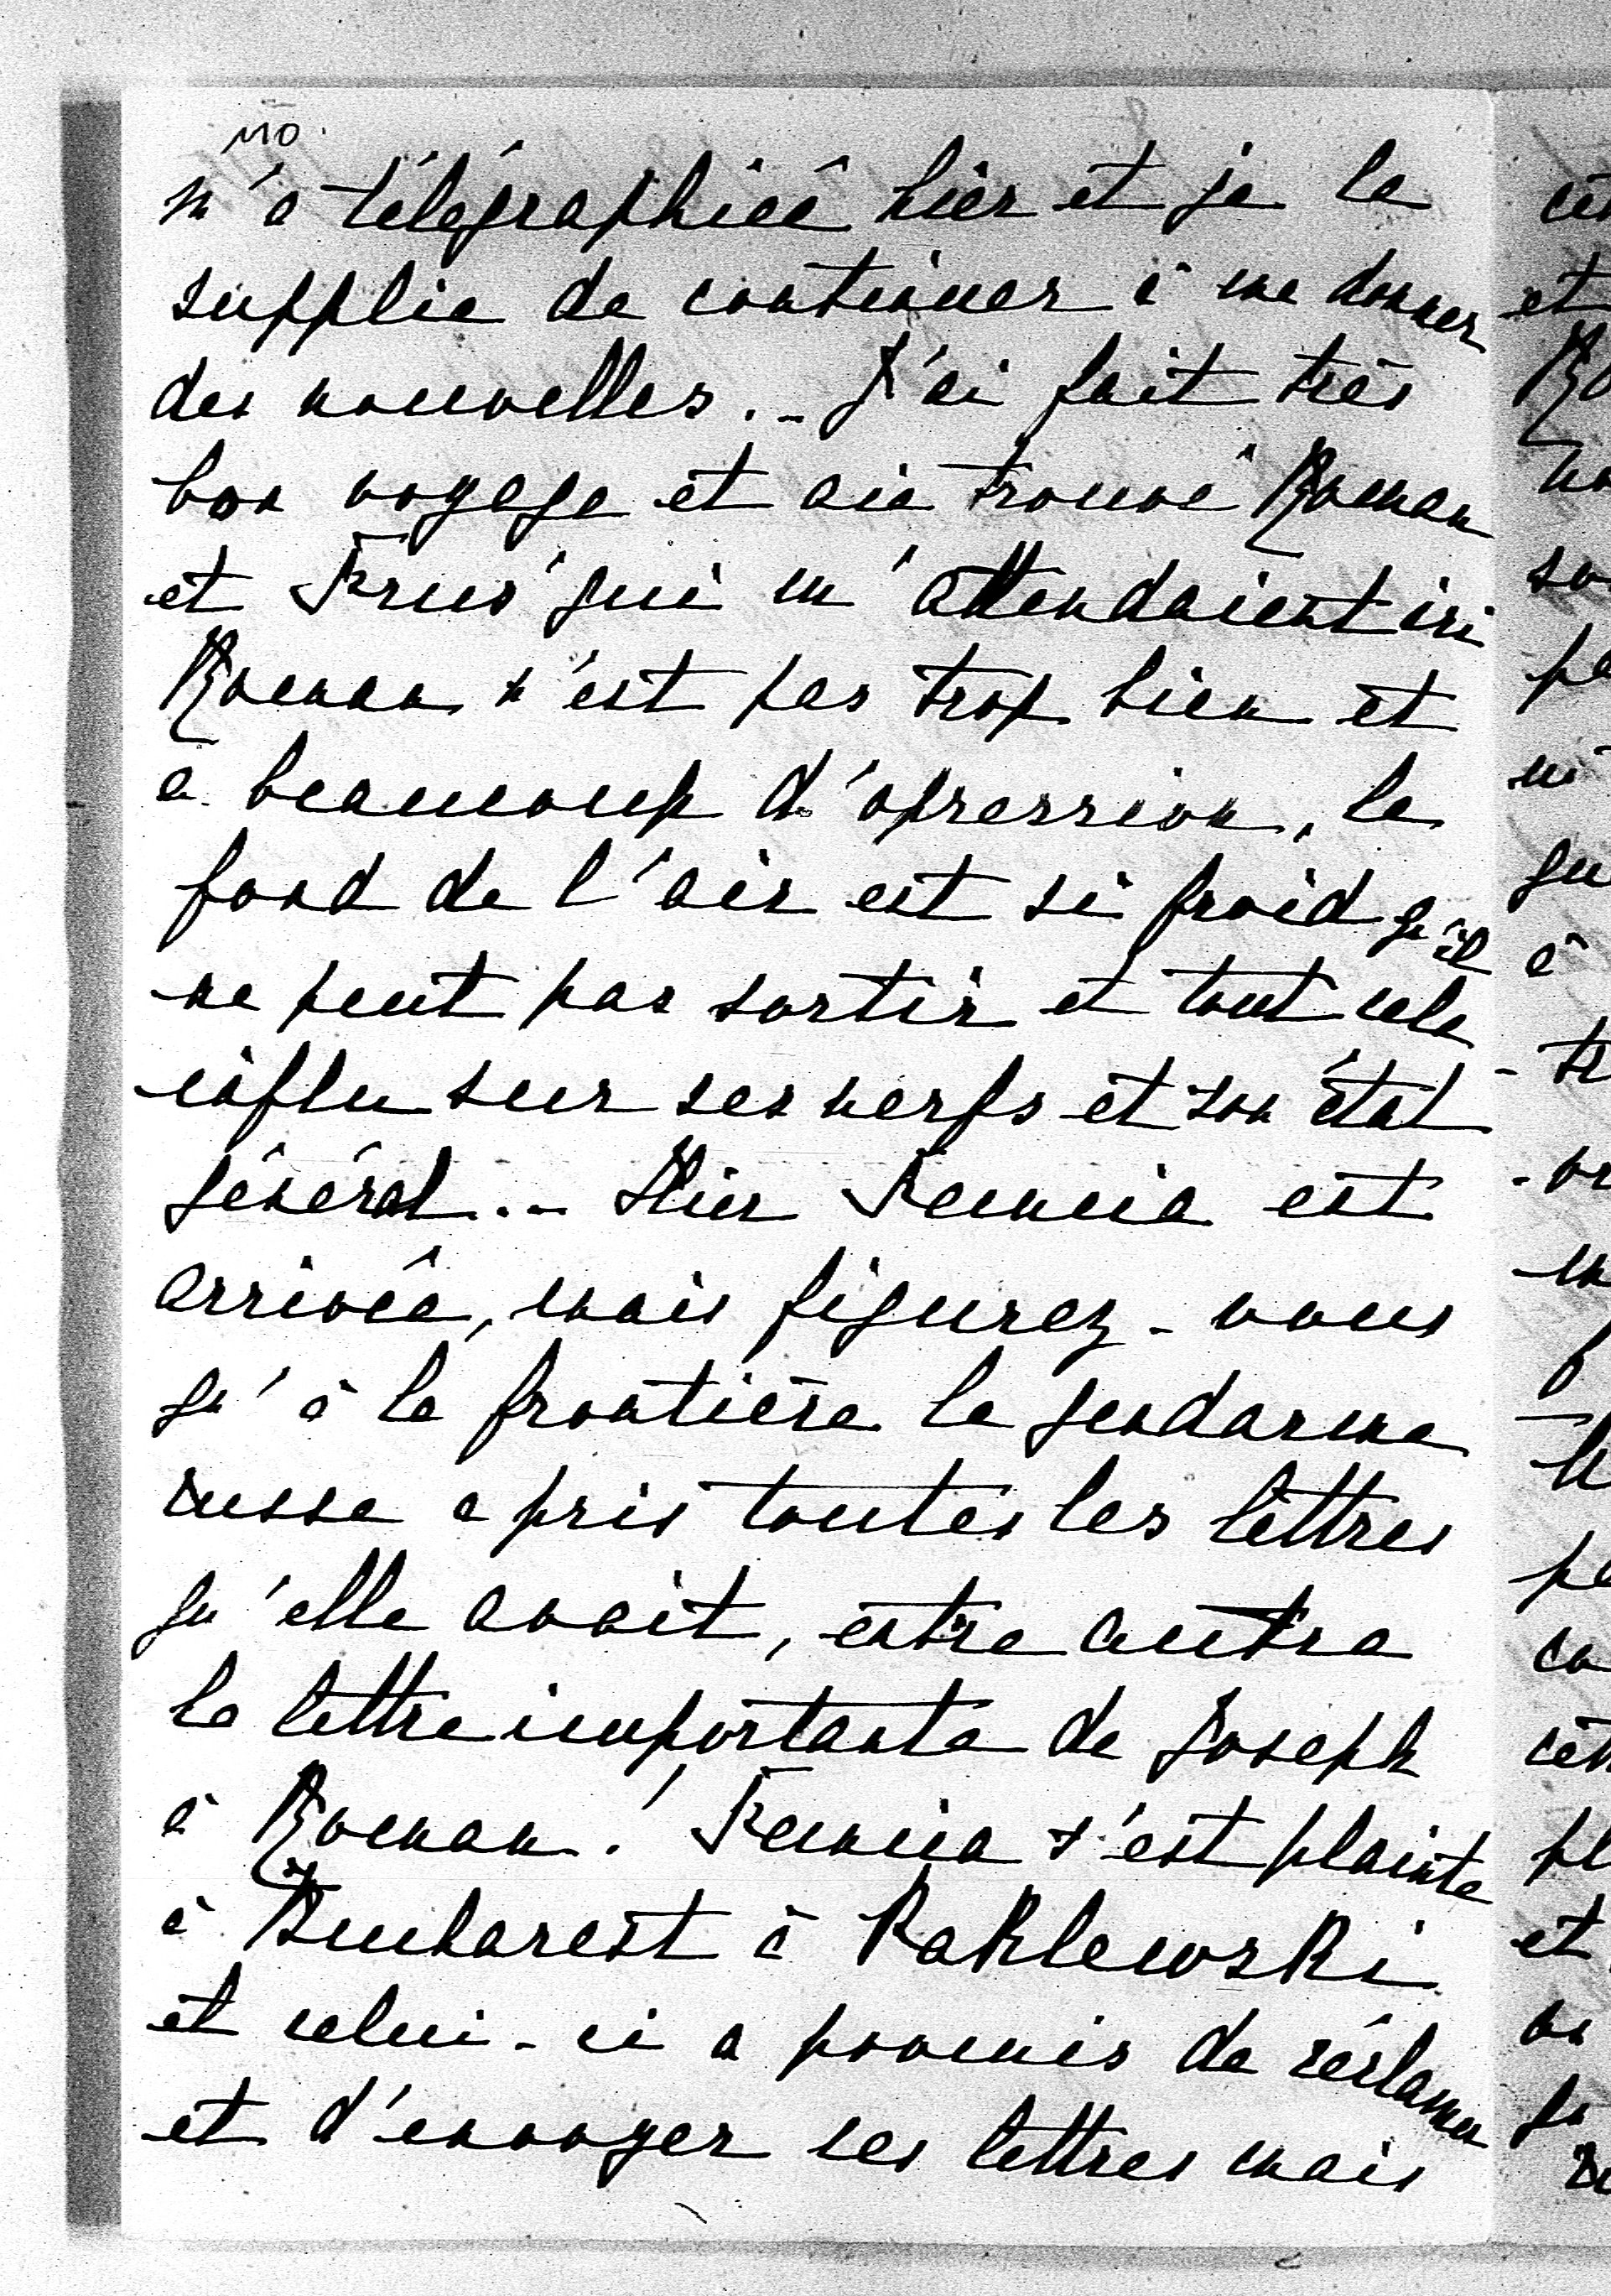 110
m'a télégraphiée hier et je la
supplie de continuer à me donner
des nouvelles. - J'ai fait très
bon voyage et aie trouvé Roman
et Krus' qui m'attendaient ici
Roman n'est pas trop bien et
a beaucoup d'opression, le
fond de l'air est si froid qu'il
ne peut pas sortir et tout cela
influ sur ses nerfs et son état
général. - Hier Renia est
arrivée, mais figurez-vous
qu'à la frontière le gendarme
russe a pris toutes les lettres
qu'elle avait, entre autre
la lettre importante de Joseph
à Roman! s'est plainte
à Bucharest à Paklewski
et celui-ci a promis de réclamer
et d'envoyer ces lettres mais